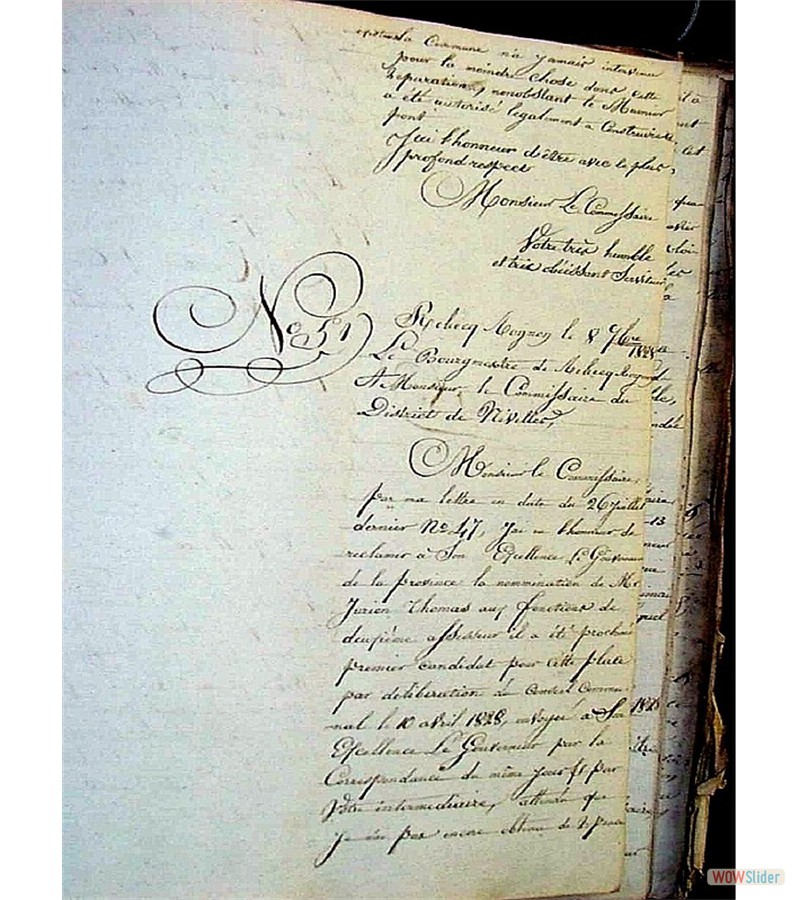 la Commune n'a jamais intervenu
pour la moindre chose dans cette
réparation, nonobstant le Meunier
a été autorisé legalement a Construire
pont
J'ai l'honneur d'être avec le plus
profond respect
Monsieur Le Commissaire
Votre très humble
et très obéissant Serviteur
No 51
Rebecq Rognon le 8 9bre
1828
Le Bourgmestre de Rebecq-Rognon
A Monsieur le Commissaire du
District de Nivelles,
Monsieur le Commissaire,
par ma lettre en date du 26 juillet
dernier No 47, J'ai eu l'honneur de
reclamer à Son Excellence Le Gouverneur
de la province la nommination de Mr
Thomas aux fonctions de
deuxième assesseur il a été proclamé
premier candidat pour cette place
par deliberation du Conseil Commu-
nal le 10 avril 1828, envoyé à Son
Excellence Le Gouverneur par la
Correspondance du même jour et par
Votre intermediaire, attendu que
je n'ai pas encore obtenu de
1828
WOWSlider